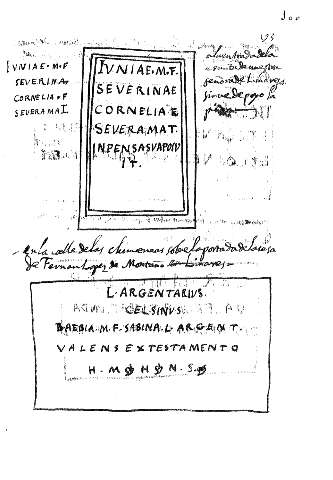 IVNIAE·M·F
SEVERINA
CORNELIA·F
SEVERA MA
IVNIAE·M·F·
SEVERINAE
CORNELIA E
SEVERA·MAT·
INPENSASVAPOIV
IT·
a la entrada de la
señora de Linares
sirve de poyo la
en la calle de las chimeneas sobre la portada de la casa
de Fernan Lopez de Montaño en Linares
L·ARGENTARIUS·
CELSINVS·
BAEBIA·M·F·SABINA·L·ARGENT·
VALENS EX TESTAMENTO
H·M·H·N·S